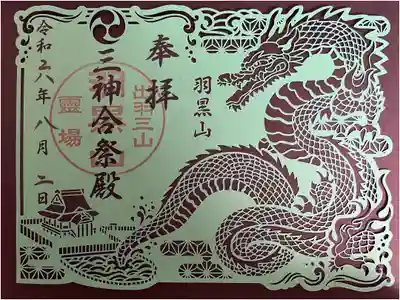 奉拝
羽黒山
出羽三山
三神合祭殿
靈場
令和六年八月二日